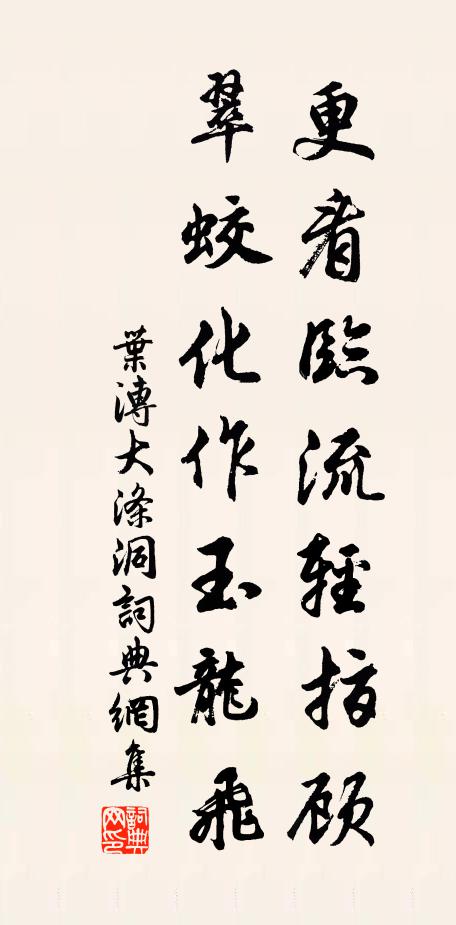 更看臨流輕指顾
翠蛟化作玉龍飛
葉溥大滌洞詞典網集
詞典网印